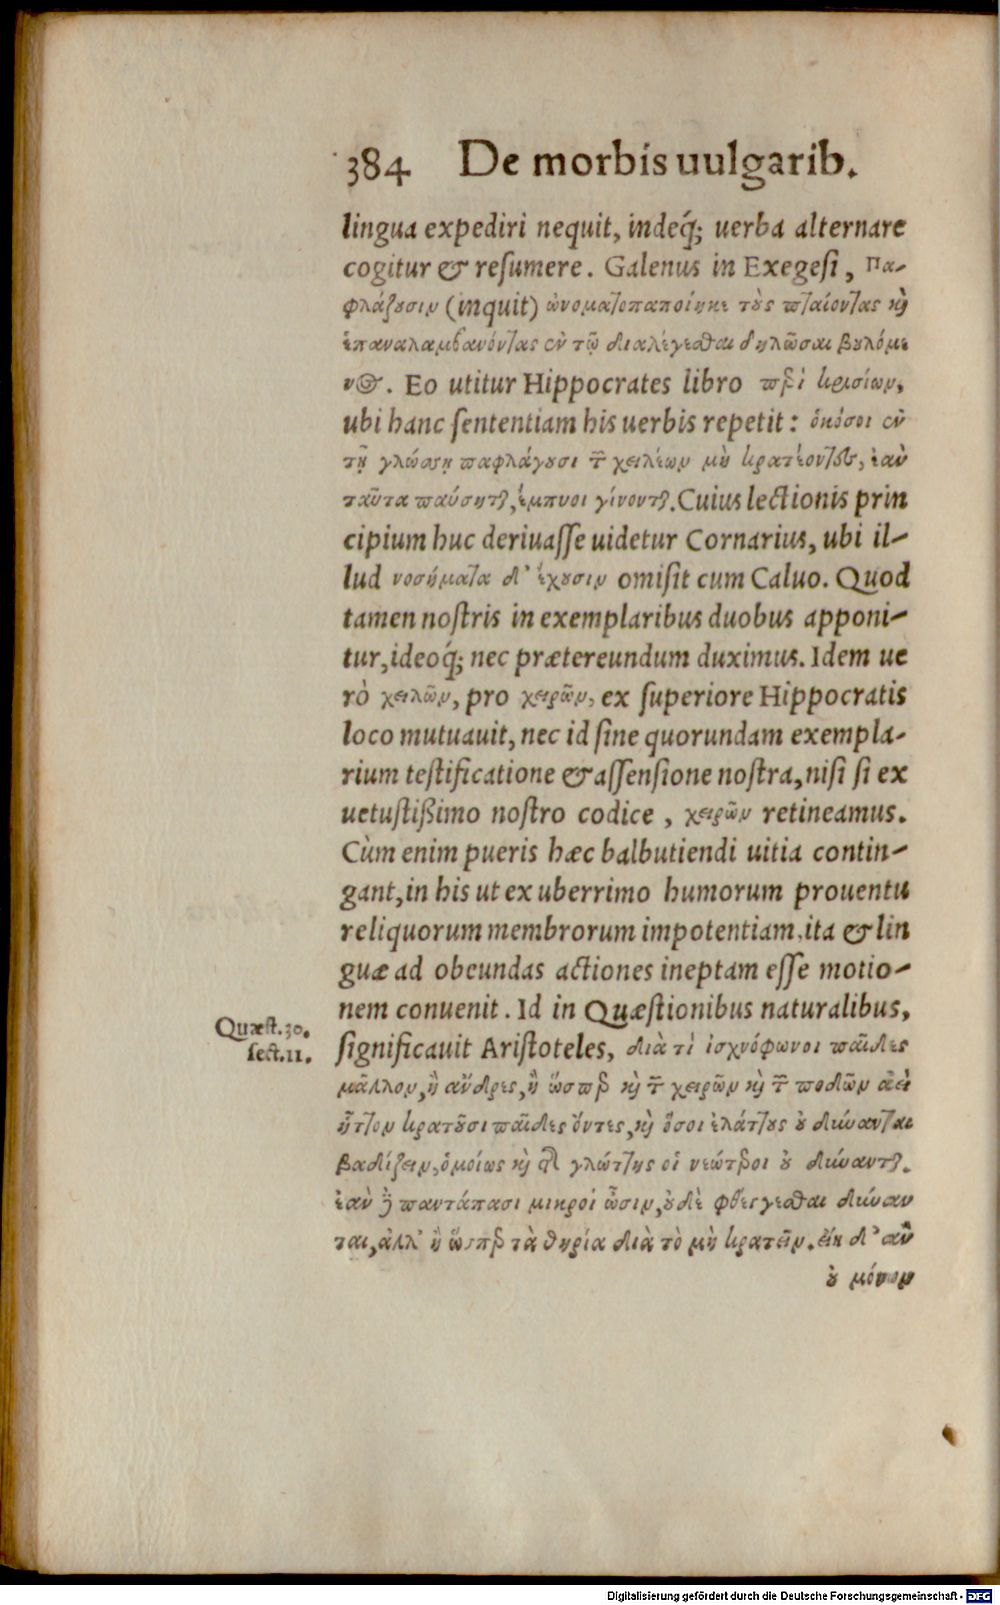 384 De morbis uulgarib.
lingua expediri nequit, indeq́; uerba alternare
cogitur & resumere. Galenus in Exegesi, Πα-
φλάζουσιν (inquit) ὠνοματοπαποίηκε τοὺς πταίοντας καὶ
ἐπαναλαμβανόντας ἐν τῷ διαλέγεσθαι δηλῶσαι βουλόμε
νος. Eo utitur Hippocrates libro περὶ κρισίων,
ubi hanc sententiam his uerbis repetit: ὁκόσοι ἐν
τῇ γλώσσῃ παφλάγουσι τῶν χειλέων μὴ κρατέοντες, ἐὰν
ταῦτα παύσηται, ἔμπυοι γίνονται. Cuius lectionis prin
cipium huc deriuasse uidetur Cornarius, ubi il-
lud νοσήματα δ' ἔχουσιν omisit cum Caluo. Quod
tamen nostris in exemplaribus duobus apponi-
tur, ideoq́; nec prætereundum duximus. Idem ue
rò χειλῶν, pro χειρῶν, ex superiore Hippocratis
loco mutuauit, nec id sine quorundam exempla-
rium testificatione & assensione nostra, nisi si ex
uetustißimo nostro codice, χειρῶν retineamus.
Cùm enim pueris hæc balbutiendi uitia contin-
gant, in his ut ex uberrimo humorum prouentu
reliquorum membrorum impotentiam, ita & lin
guæ ad obeundas actiones ineptam esse motio-
nem conuenit. Id in Quæstionibus naturalibus,
Quæst. 30.
sect. 11.
significauit Aristoteles, διὰ τί ἰσχνόφωνοι παῖδες
μᾶλλον, ἢ ἄνδρες, ἢ ὥσπερ καὶ τῶν χειρῶν καὶ τῶν ποδῶν ἀεὶ
ἧττον κρατοῦσι παῖδες ὄντες, καὶ ὅσοι ἐλάττους οὐ δύνανται
βαδίζειν, ὁμοίως καὶ τῆς γλώττης οἱ νεώτεροι οὐ δύνανται.
ἐὰν δὲ παντάπασι μικροὶ ὦσιν, οὐδὲ φθέγγεσθαι δύναν
ται, ἀλλ' ἢ ὥσπερ τὰ θηρία διὰ τὸ μὴ κρατεῖν. εἴη δ' ἂν
οὐ μόνον
Digitalisierung gefördert durch die Deutsche Forschungsgemeinschaft - DFG